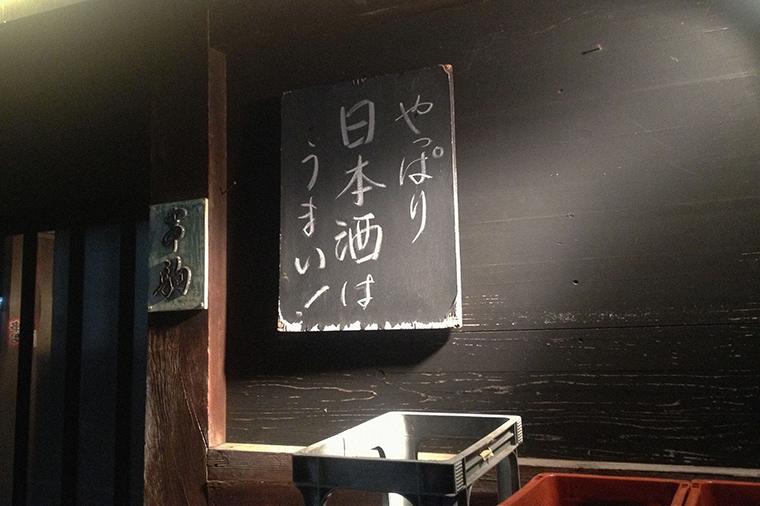 やっぱり
日本酒は
うまい!
串駒